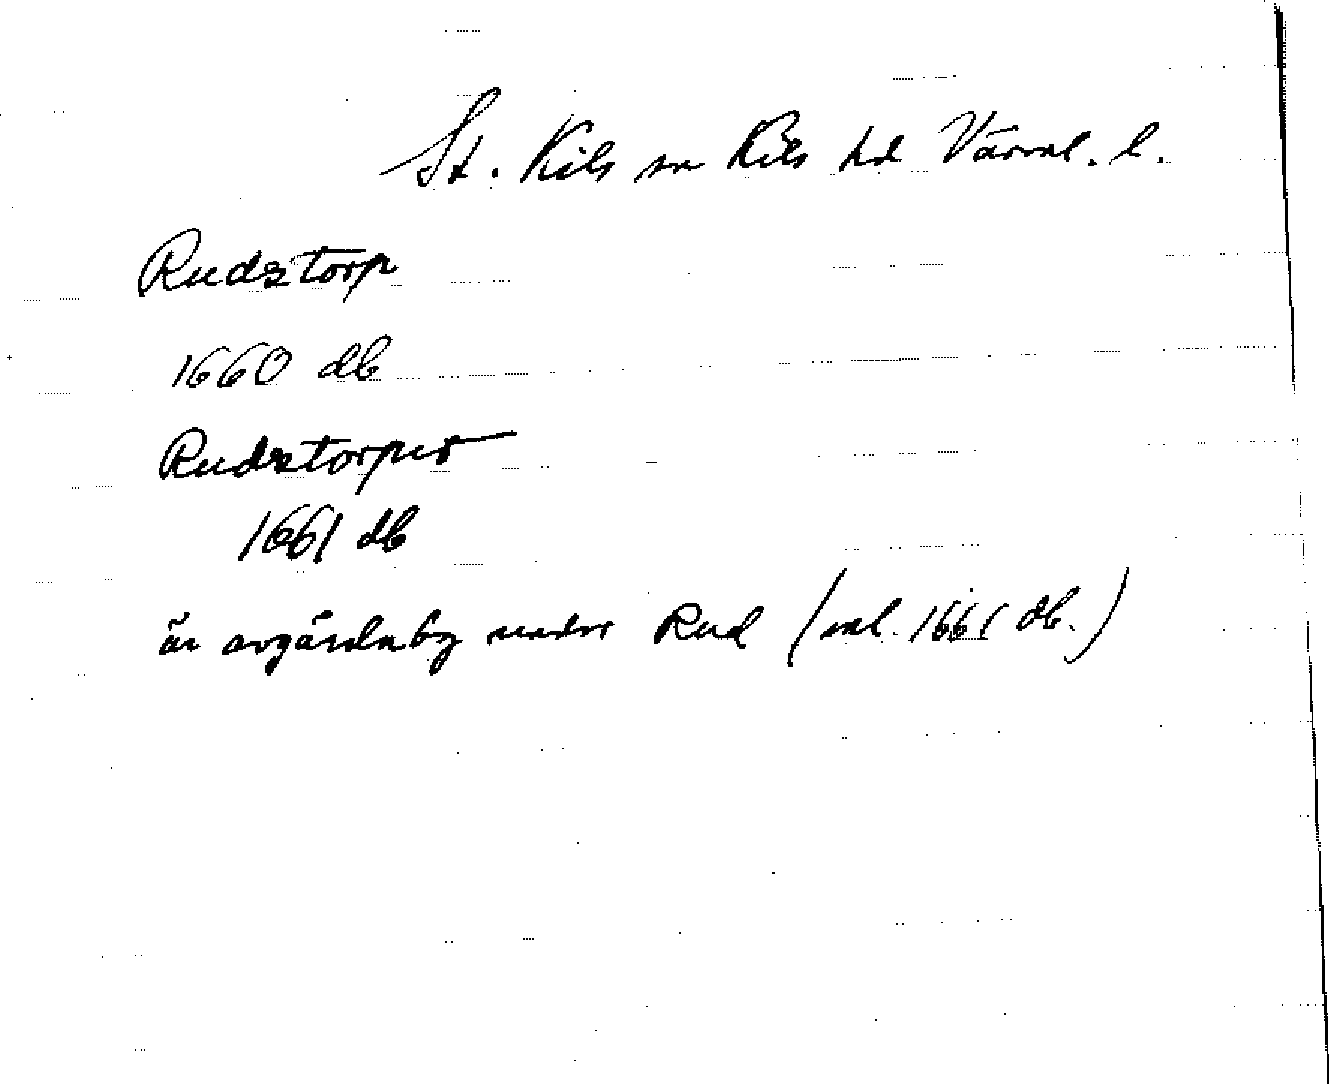 St. Kils sn Kils hd Värml. l.
Rudstorp
1660 db
Rudztorpet
1661 db
är avgärdaby under Rud (enl. 1661 db.)